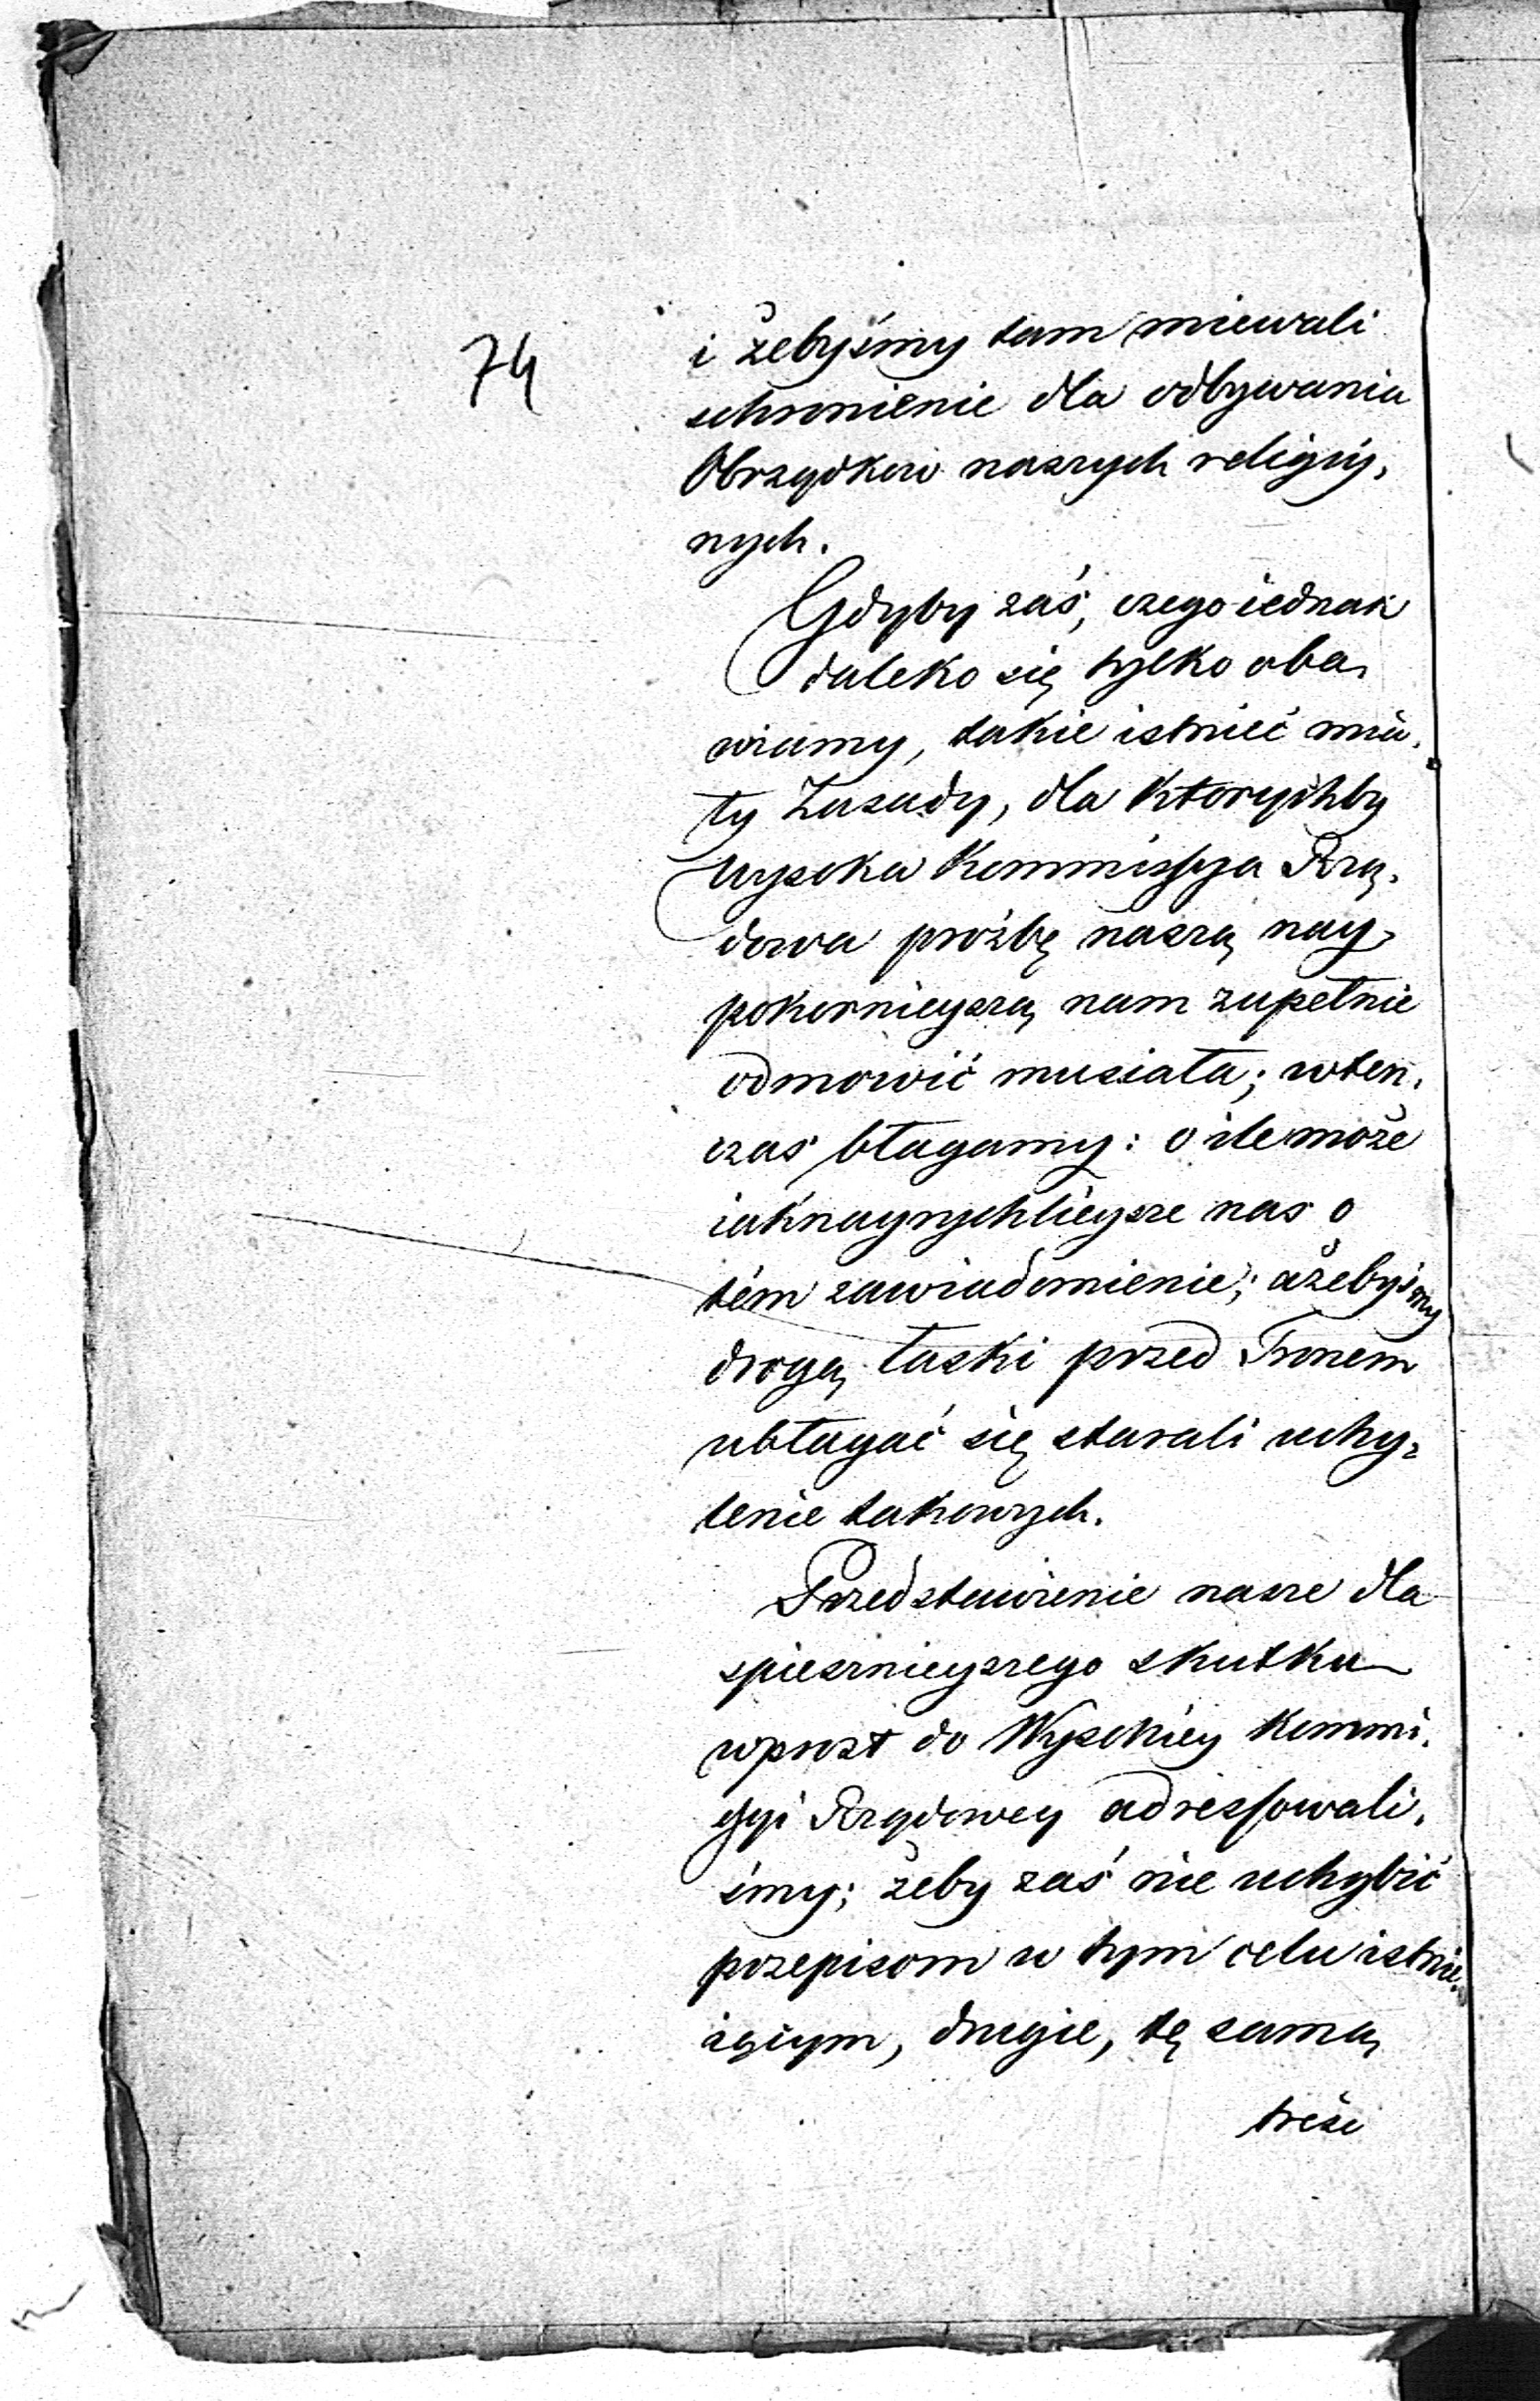 74
i żebyśmy tam miewali
schronienie dla odbywania
Obrządkow naszych religiy-
nych.
Gdyby zaś, czego iednak
daleko się tylko oba-
wiamy, takie istnieć mia-
ły Zasady, dla ktorychby
Wysoka Kommissya Rzą-
dowa proźbę naszą nay-
pokornieyszą nam zupełnie
odmowić musiała; wten-
czas błagamy: o ile może
iaknayrychleysze nas o
tém zawiadomienie; ażebyśmy
drogą łaski przed Tronem
ubłagać się starali uchy-
lenie takowych.
Przedstawienie nasze dla
spiesznieyszego skutku
wprost do Wysokiey Kommi-
ssyi Rządowey adressowali-
śmy; żeby zaś nie uchybić
przepisom w tym celu istnie-
iącym, drugie, tę samą
treść